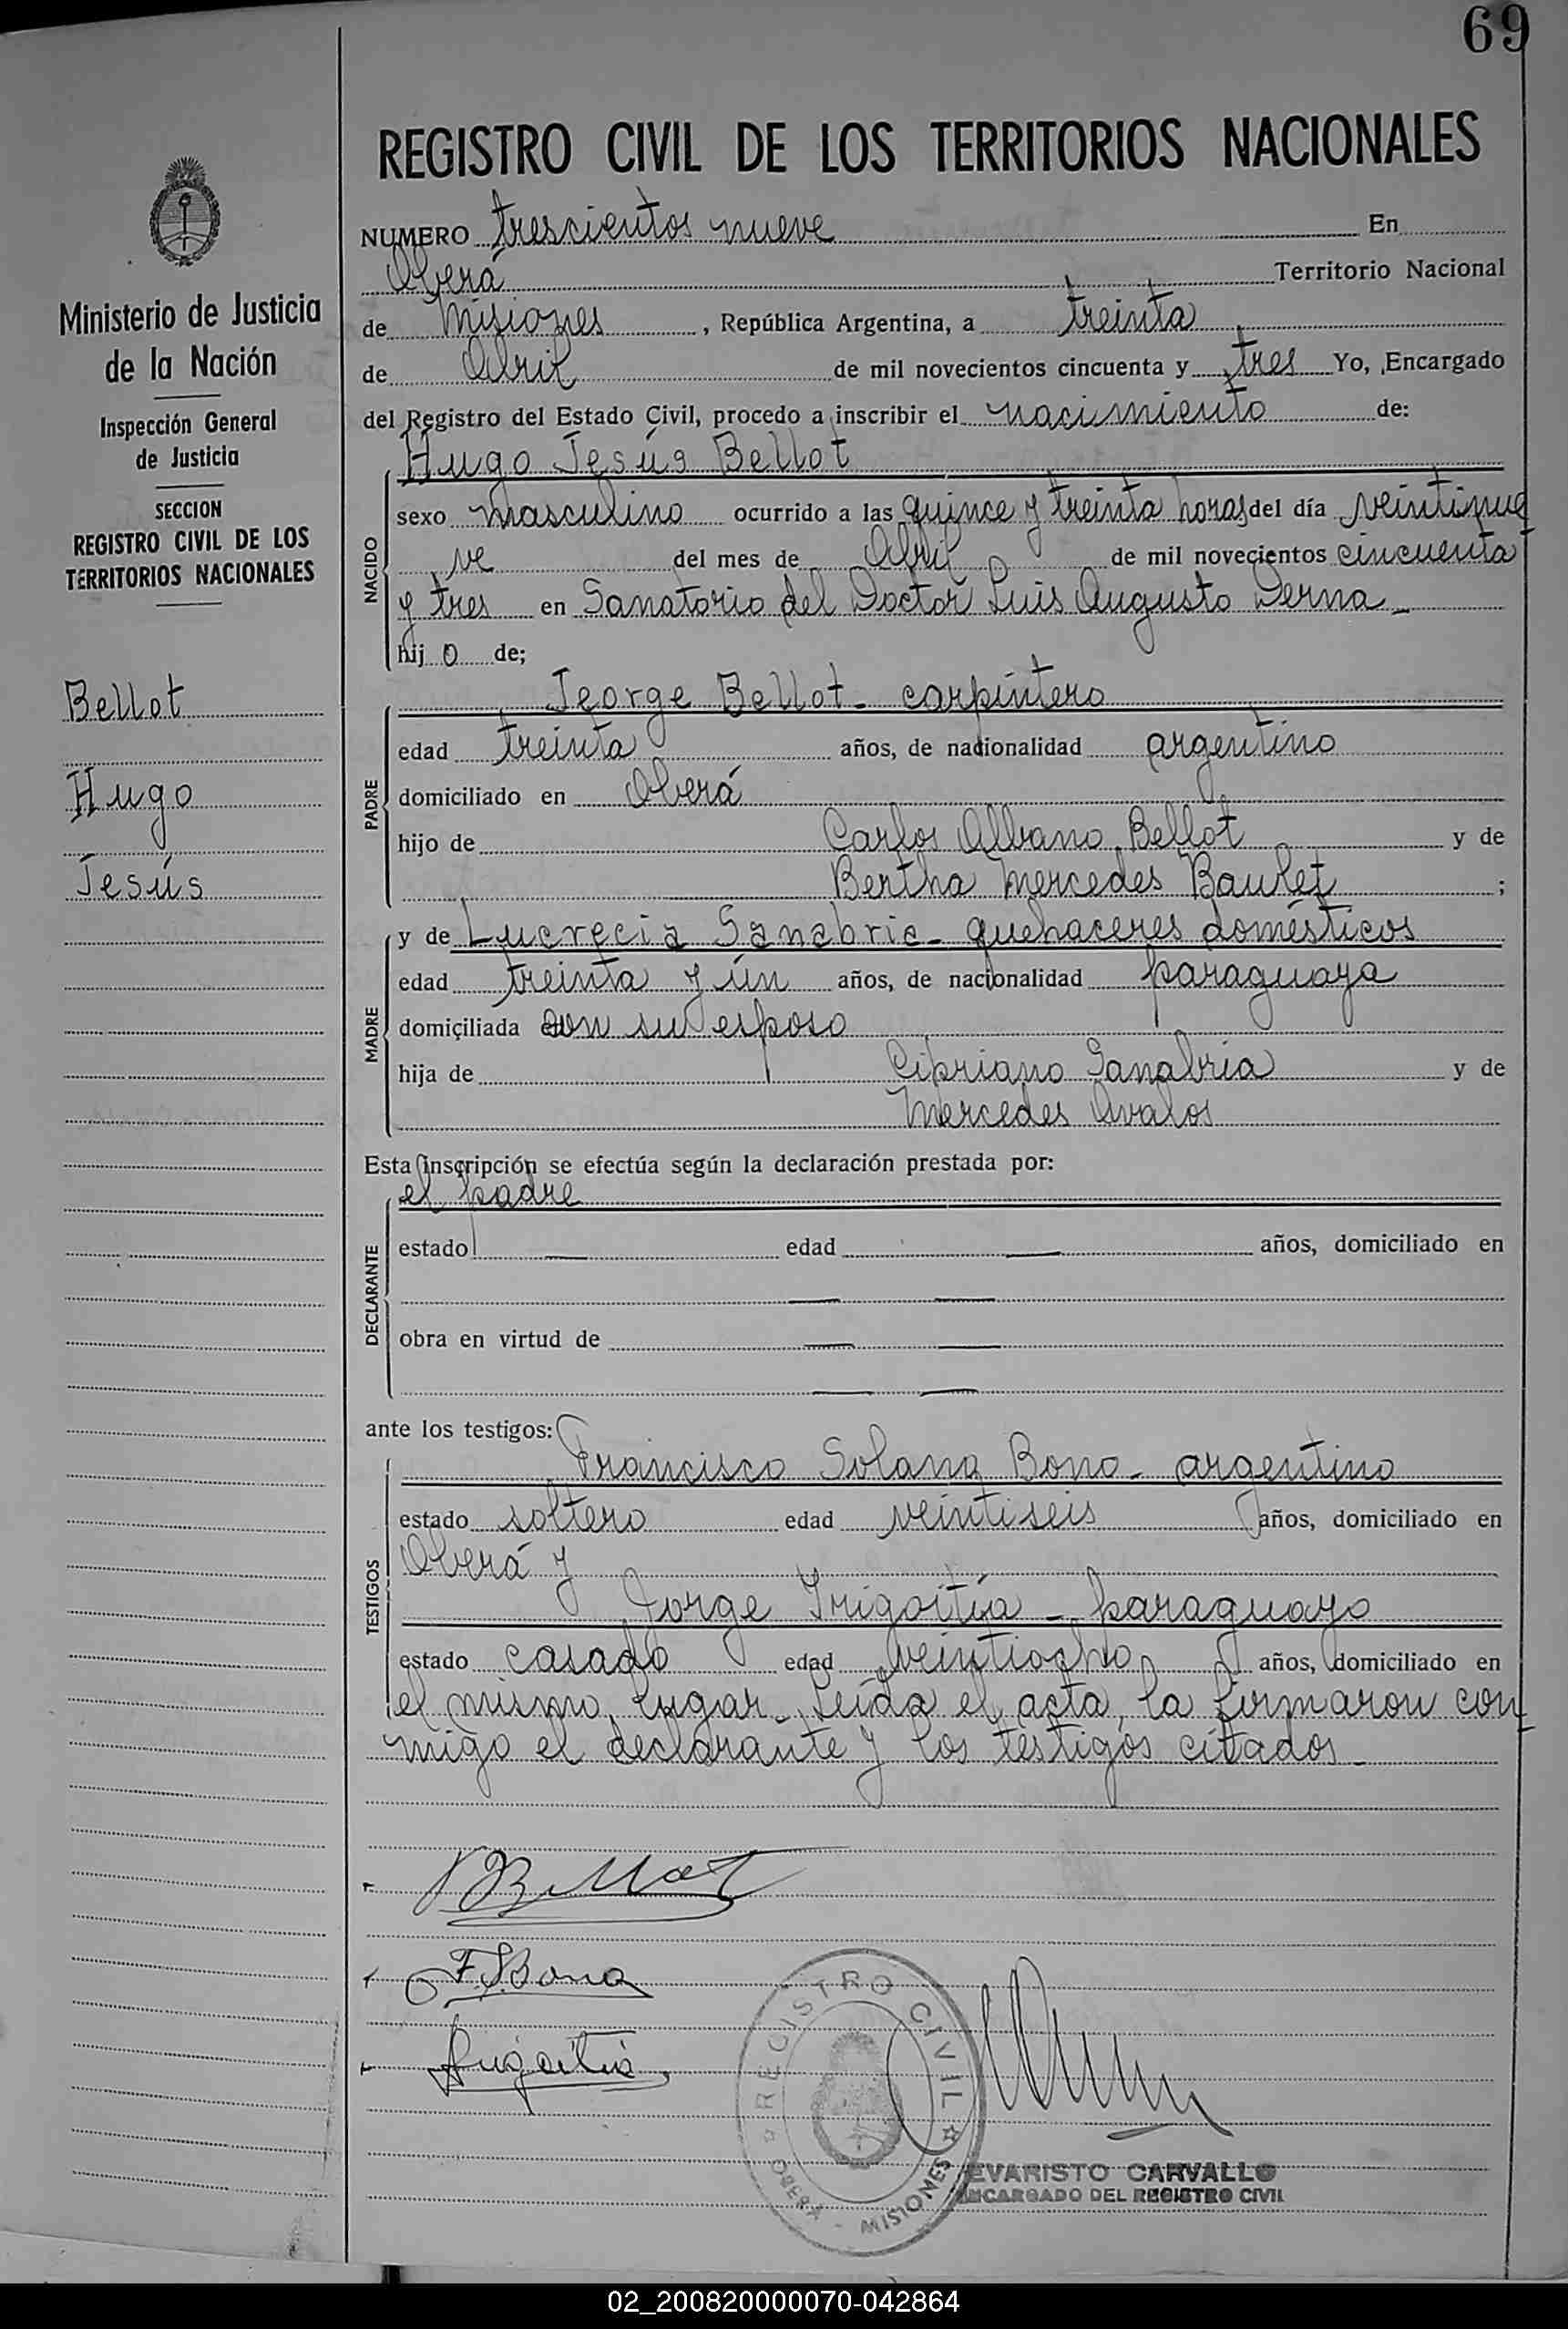 69
REGISTRO CIVIL DE LOS TERRITORIOS NACIONALES
Ministerio de Justicia
de la Nación
Inspección General
de Justicia
SECCION
REGISTRO CIVIL DE LOS
TERRITORIOS NACIONALES
Bellot
Hugo
Jesús
NUMERO trescientos nueve En
Oberá Territorio Nacional
de Misiones, República Argentina, a treinta
de Abril de mil novecientos cincuenta y tres Yo, Encargado
del Registro del Estado Civil, procedo a inscribir el nacimiento de:
NACIDO
Hugo Jesús Bellot
sexo masculino ocurrido a las quince y treinta horas del día veintinue
ve del mes de Abril de mil novecientos cincuenta
y tres en Sanatorio del Doctor Luis Augusto Derna-
hijo de;
PADRE
Jeorge Bellot- carpintero
edad treinta años, de nacionalidad argentino
domiciliado en Oberá
hijo de Carlos Albano Bellot y de
Bertha Mercedes Baulet;
MADRE
y de Lucrecia Sanabria- quehaceres domésticos
edad treinta y ún años, de nacionalidad paraguaya
domiciliada con su esposo
hija de Cipriano Sanabria y de
Mercedes Avalos
Esta inscripción se efectúa según la declaración prestada por:
DECLARANTE
el padre
estado — edad — años, domiciliado en
— —
obra en virtud de — —
— —
ante los testigos:
TESTIGOS
Francisco Solana Bono- argentino
estado soltero edad veintiseis años, domiciliado en
Oberá y
Jorge Irigoitía - paraguayo
estado casado edad veintiocho años, domiciliado en
el mismo lugar- Leída el acta, la firmaron con
migo el declarante y los testigos citados-
Bellot
F.S.Bona
Irigoitia
REGISTRO CIVIL
OBERA - MISIONES
EVARISTO CARVALLO
ENCARGADO DEL REGISTRO CIVIL
02_200820000070-042864